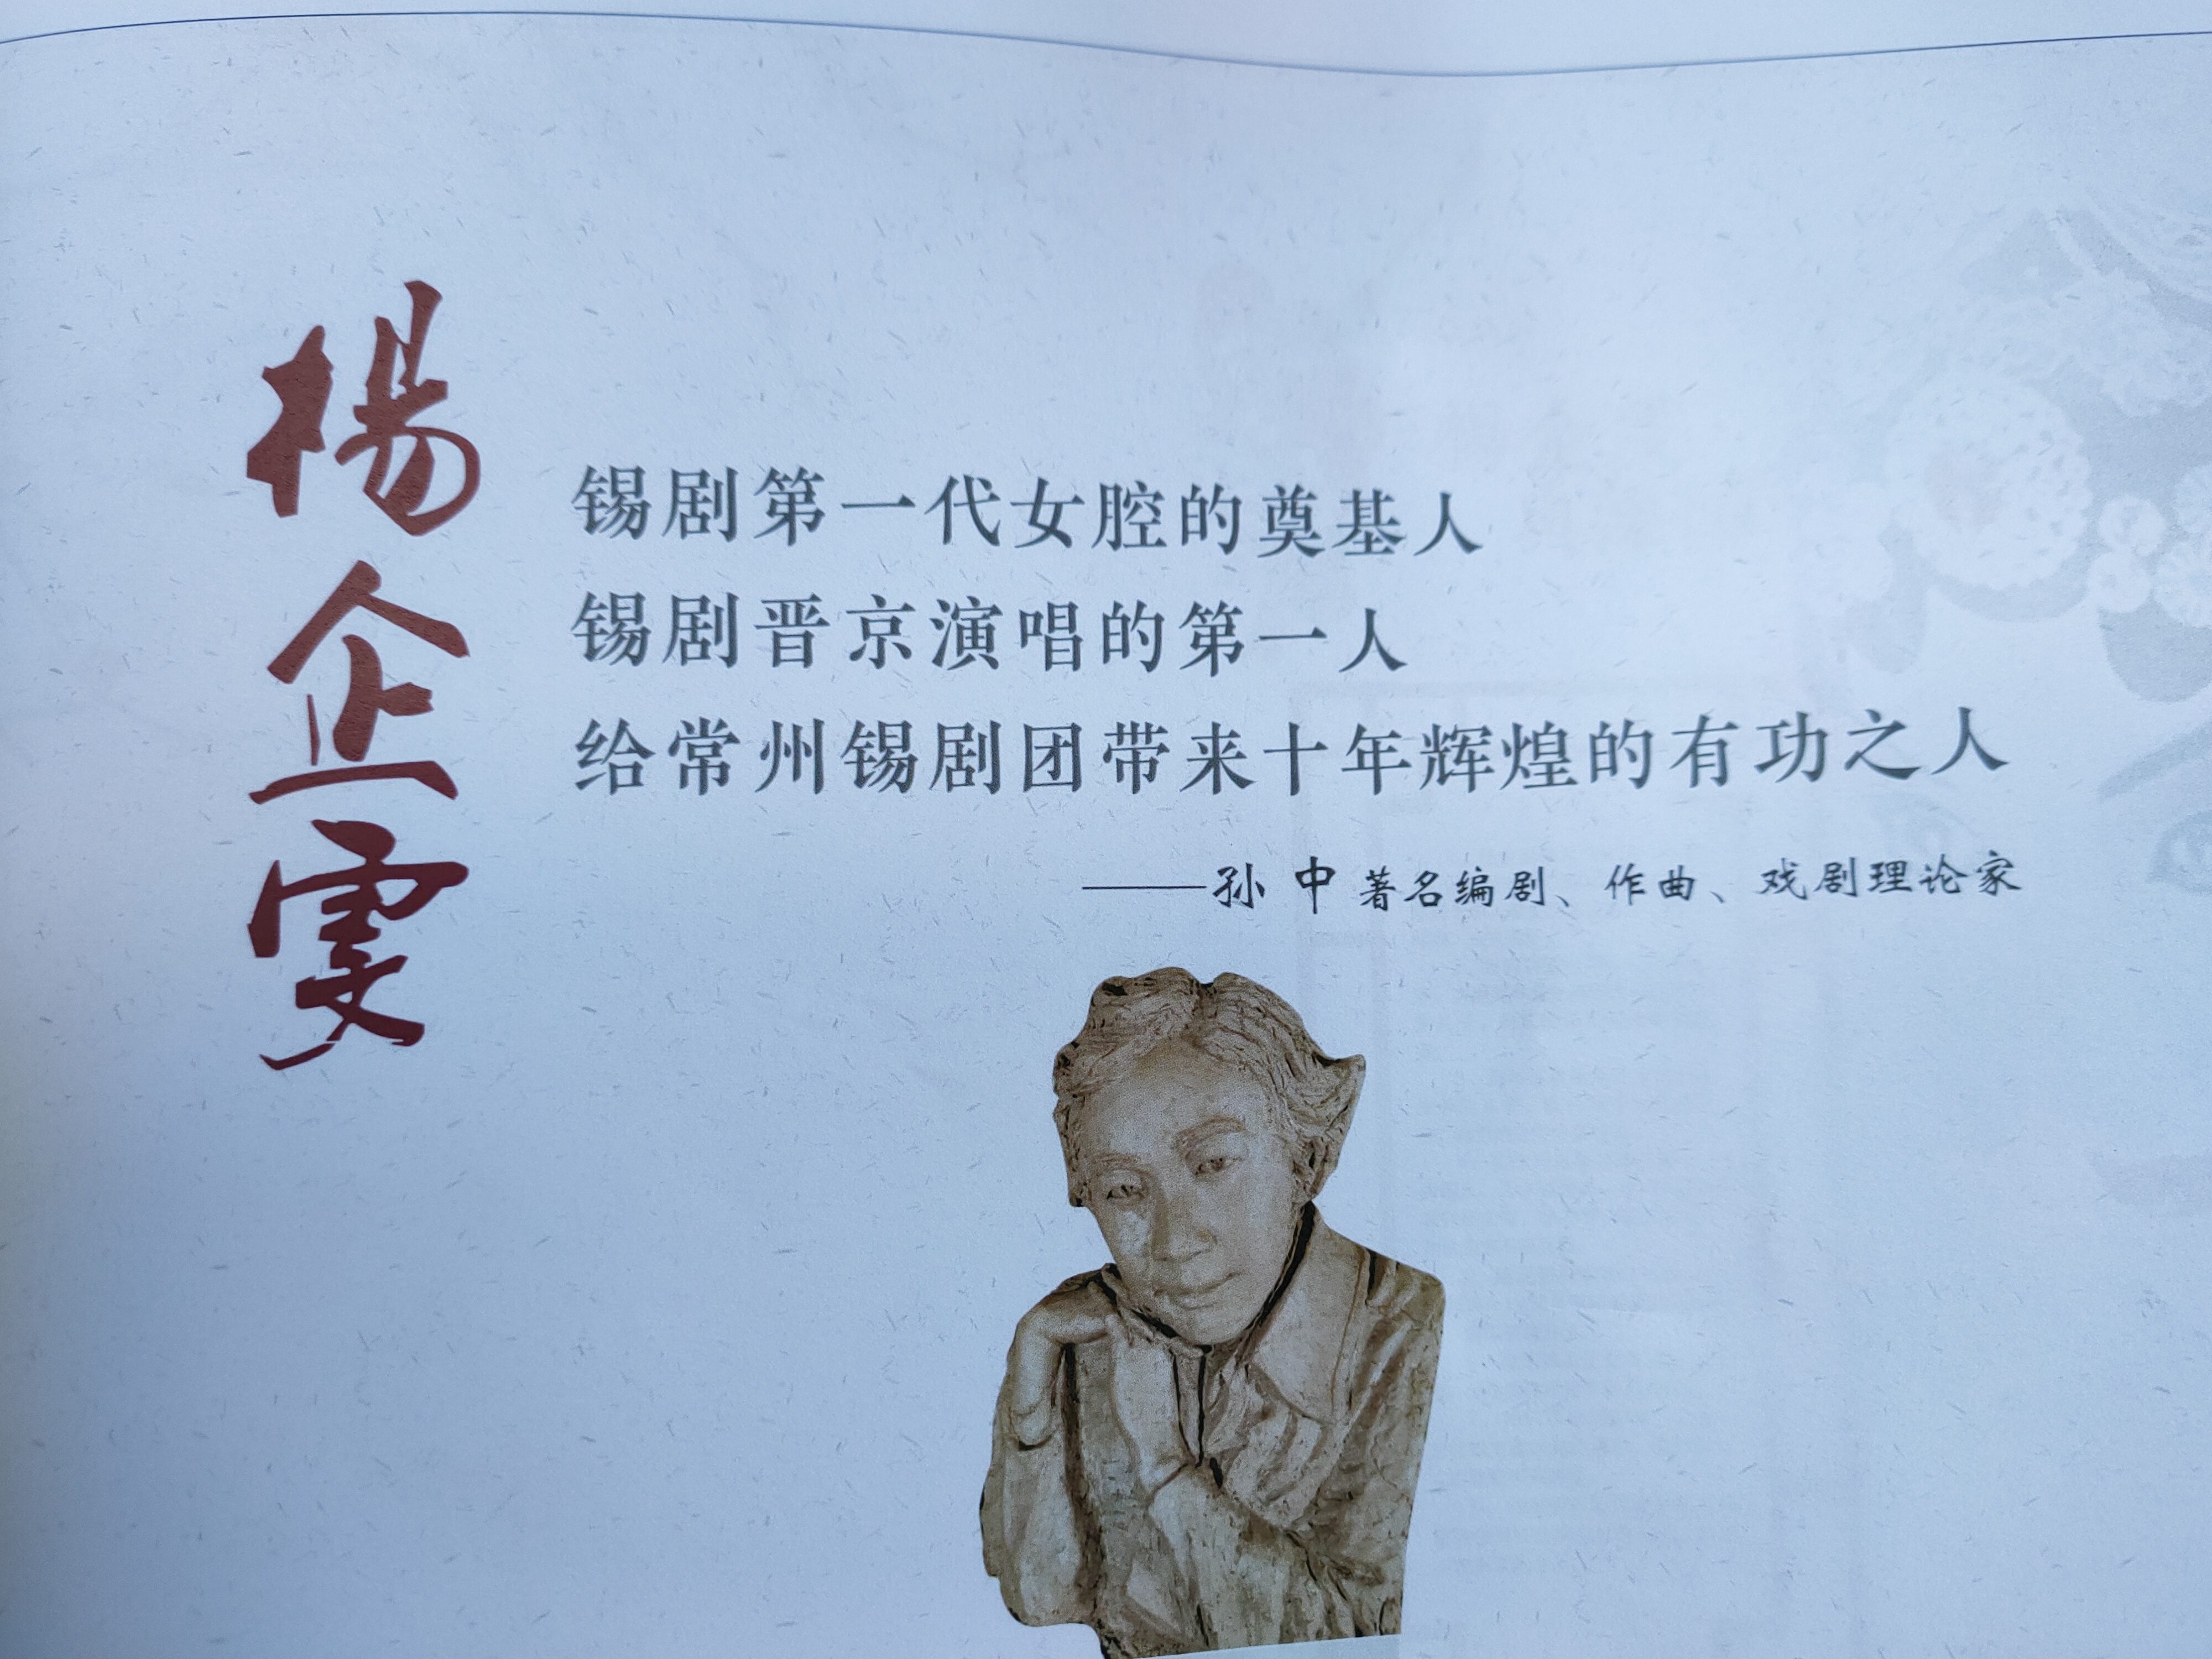 楊企雯
锡剧第一代女腔的奠基人
锡剧晋京演唱的第一人
给常州锡剧团带来十年辉煌的有功之人
——孙 中 著名编剧、作曲、戏剧理论家